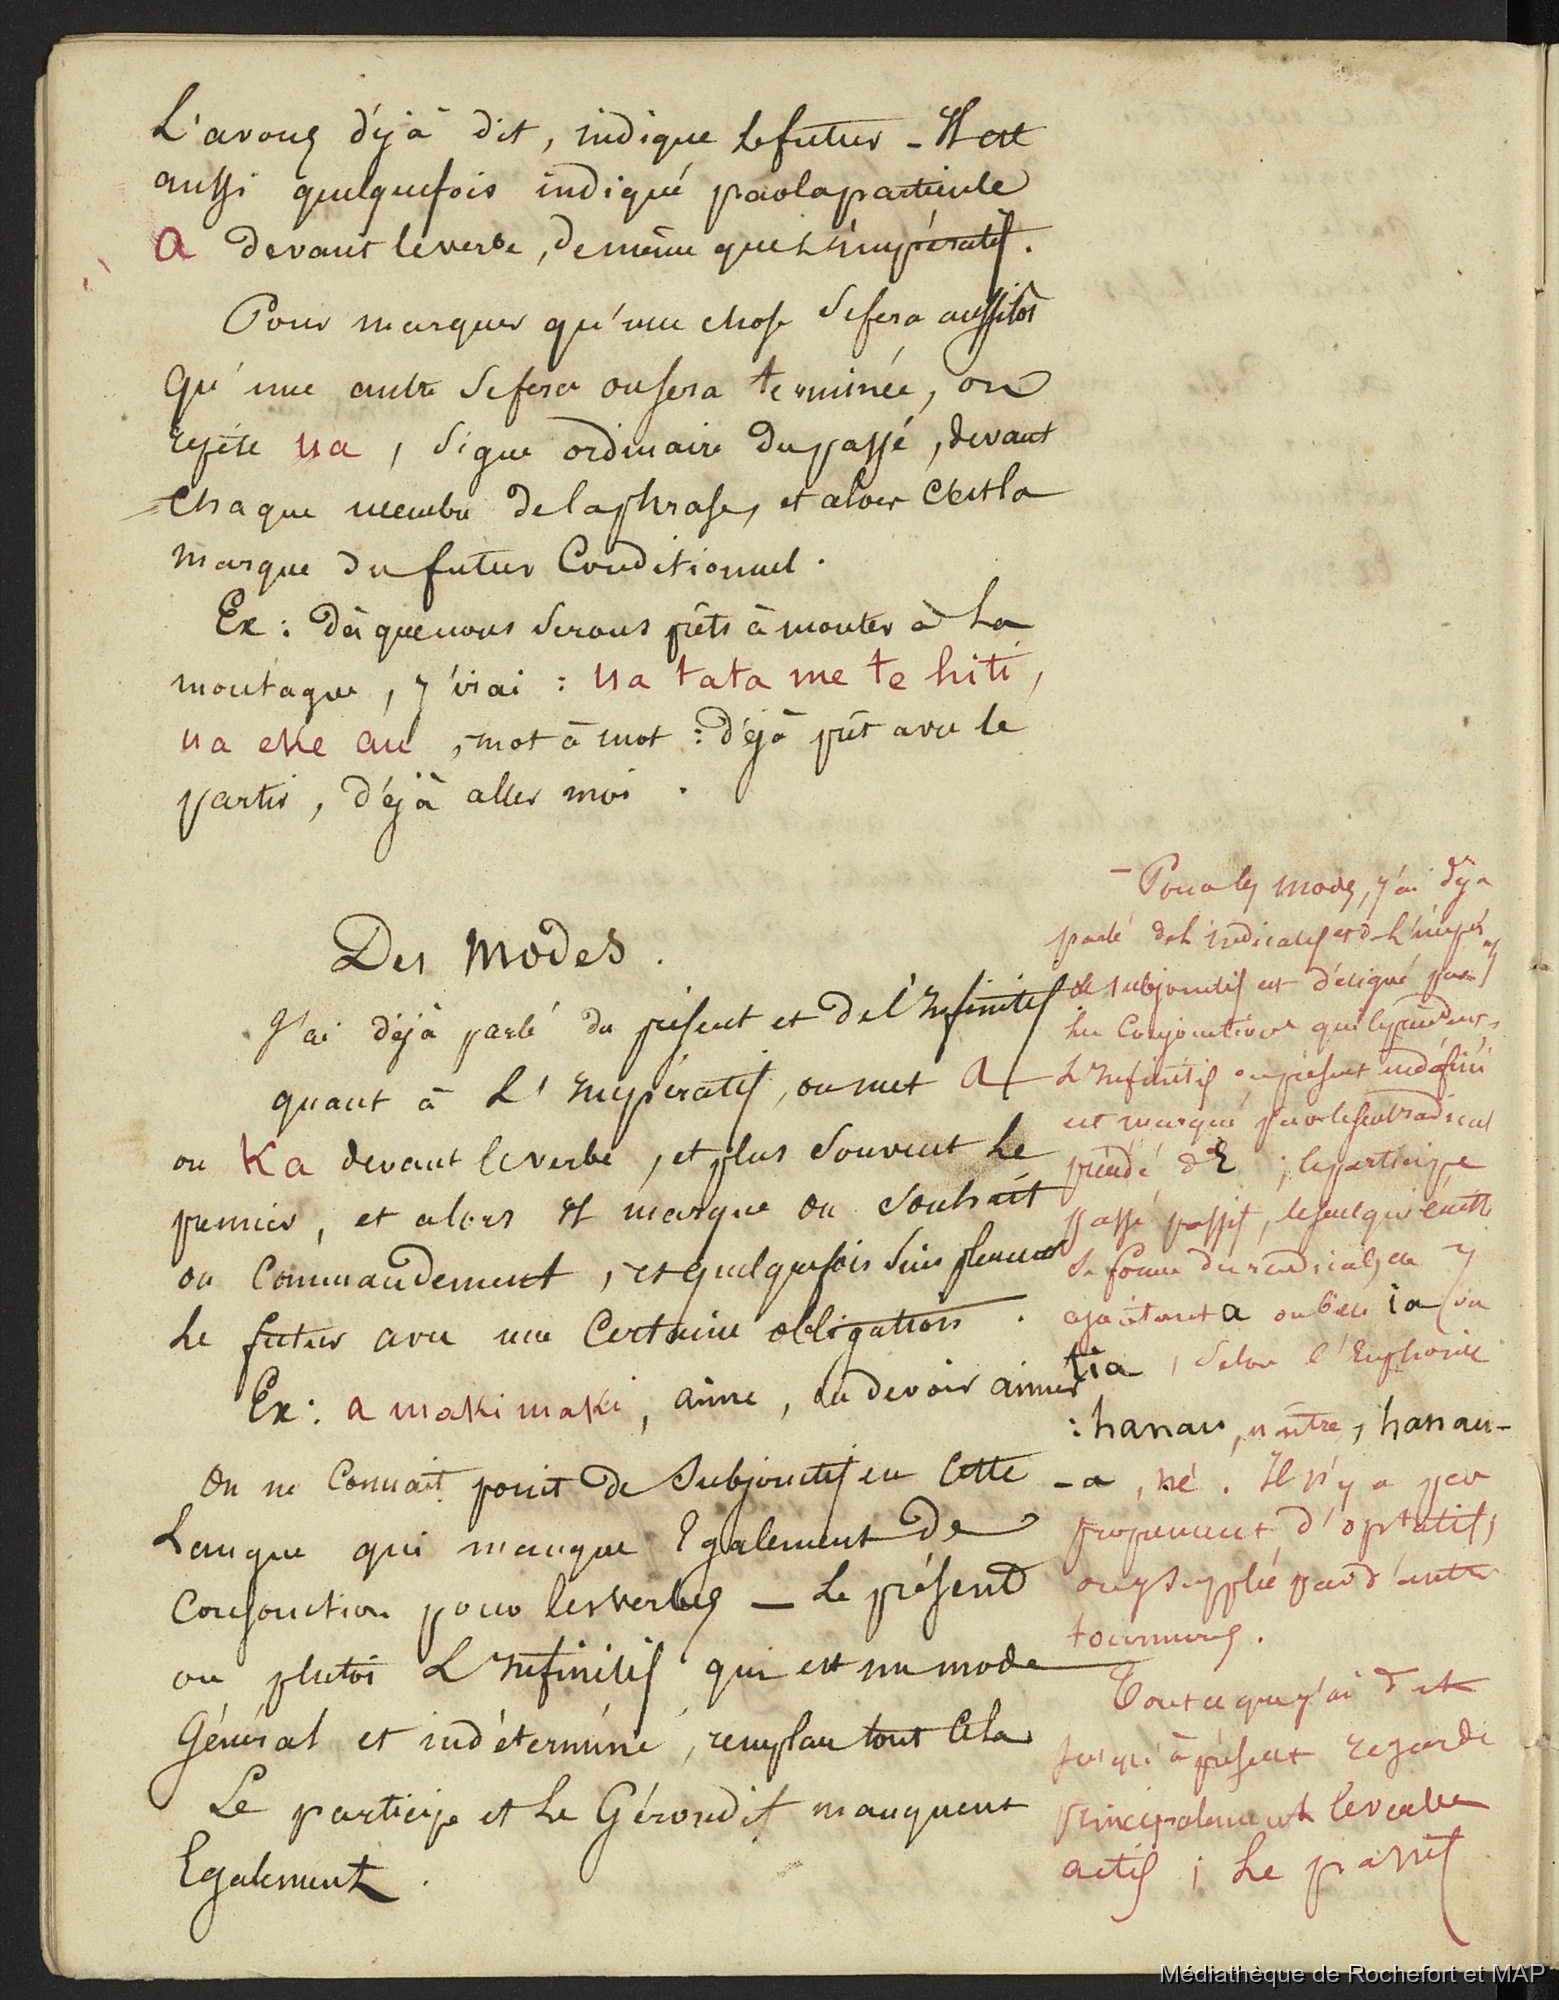 L'avons déjà dit, indique le futur - Il est
aussi quelquefois indiqué par la particule
a devant le verbe, de même que L'impératif.
Pour marquer qu'une chose se fera aussitôt
qu'une autre se fera ou sera terminée, on
répéte ua, signe ordinaire du passé, devant
chaque membre de la phrase, et alors c'est la
marque du futur Conditionnel.
Ex : dès que nous serons prêts à monter à La
montagne, j'irai : ua tata me te hiti,
ua eke au, mot à mot : déjà prêt avec le
partir, déjà aller moi.
Des Modes.
J'ai déjà parlé du présent et de L'Infinitif
quant à L'Impératif, on met a
ou Ka devant le verbe, et plus souvent Le
premier, et alors il marque ou souhait
ou Commandement, et quelquefois simplement
Le futur avec une Certaine obligation.
Ex : a makimaki, aime, ou devoir aimer
On ne Connait point de Subjonctif en cette
Langue qui manque Egalement de
Conjonction pour les verbes — Le présent
ou plutôt L'Infinitif qui est un mode
Général et indéterminé, remplace tout cela
Le participe et Le Gérondif manquent
Egalement.
- Pour les modes, j'ai déjà
parlé de L'indicatif et de L'impératif
Le subjonctif est désigné par
les Conjonctions qui le précèdent,
L'Infinitif ou présent indéfini
est marqué par le seul radical
précédé d'E ; le participe
passé passif, le seul qui existe
se forme du radical, en y
ajoutant a ou bien ia ou
tia, selon l'Euphonie
: hanau, naître, hanau-
-a, né. Il n'y a pas
proprement d'optatif,
on y supplée par d'autres
tournures.
Tout ce que j'ai dit
jusqu'à présent regarde
principalement le verbe
actif ; Le passif
Médiathèque de Rochefort et MAP